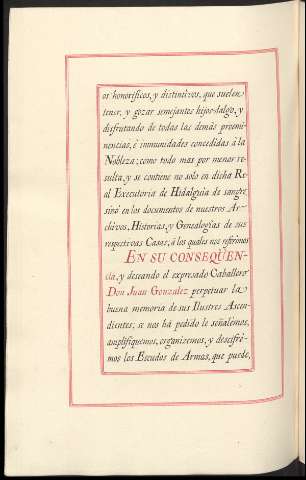 os honorificos, y distintivos, que suelen
tener, y gozar semejantes hijos-dalgo, y
disfrutando de todas las demás preemi-
nencias, è inmunidades concedidas à la
Nobleza; como todo mas por menor re-
sulta, y se contiene no solo en dicha Re-
al Executoria de Hidalguia de sangre,
sinò en los documentos de nuestros Ar-
chivos, Historias, y Genealogias de sus
respectivas Casas; à los quales nos referimos
EN SU CONSEQÜEN-
cia, y deseando el expresado Caballero
Don Juan Gonzalez perpetuar la
buena memoria de sus Ilustres Ascen-
dientes, se nos hà pedido le señalèmos,
amplifiquemos, organizemos, y descifrè-
mos los Escudos de Armas, que puede,